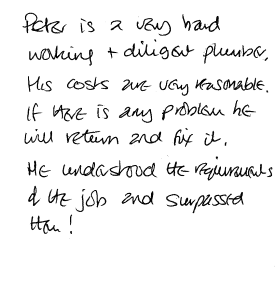 Peter is a very hard
working + diligent plumber.
His costs are very reasonable.
If there is any problem he
will return and fix it.
He understood the requirements
of the job and surpassed
them!